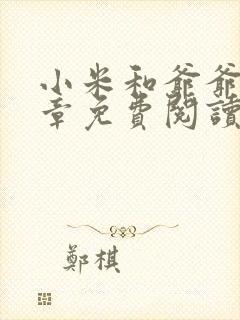 小米和爺爺
章免費閱讀
鄭棋